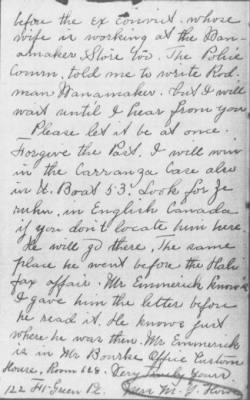 before the Ex Convict, whose
wife is working at the Wan-
amaker Store too. The Police
Comm. told me to write Rod-
man Wanamaker. But I will
wait until I hear from you
Please let it be at once.
Forgive the Past. I will win
in the Carranza Case also
in U. Boat 53. Look for Je
in English Canada
if you don't locate him here.
He will go there, the same
place he went before the Hali-
fax affair. Mr Emmerich knows
I gave him the letter before
he read it. He knows just
where he was then. Mr Emmerich
is in Mr Bourke Office Custom
House, Room 629. Very Truly Yours
122 Ft. Green Pl.